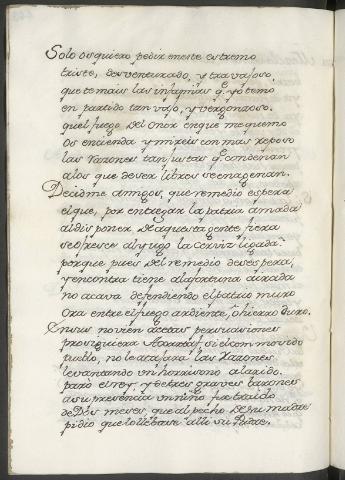 Solo os quiero pedir en este estremo
triste, desventurado, y travajoso,
que temais las infamias q.e yo temo
en partido tan vajo, y vergonzoso.
quel fuego del onor en que me quemo
os encienda y mireis con mas reposo
las razones tan justas q.e condenan
a los que de ser libres se enagenan.
Decidme amigos, que remedio espera
el que, por entregar la patria amada
al disponer de aquesta gente fiera
se ofresce al yugo la cerviz ligada
porque pues del remedio desespera,
y encontra tiene a la fortuna airada
no acava defendiendo el patrio muro
ora entre el fuego ardiente, o hierro duro.
En sus no vien acetas persuasiones
prosiguiera si el conmovido
pueblo, no le atajara las razones
levantando un horrisono alarido.
paró el rey, y de tres graves varones
a su presencia un niño fue traido
de Dos meses, que al pecho de su madre
pidio que lo llevase alli su Padre.